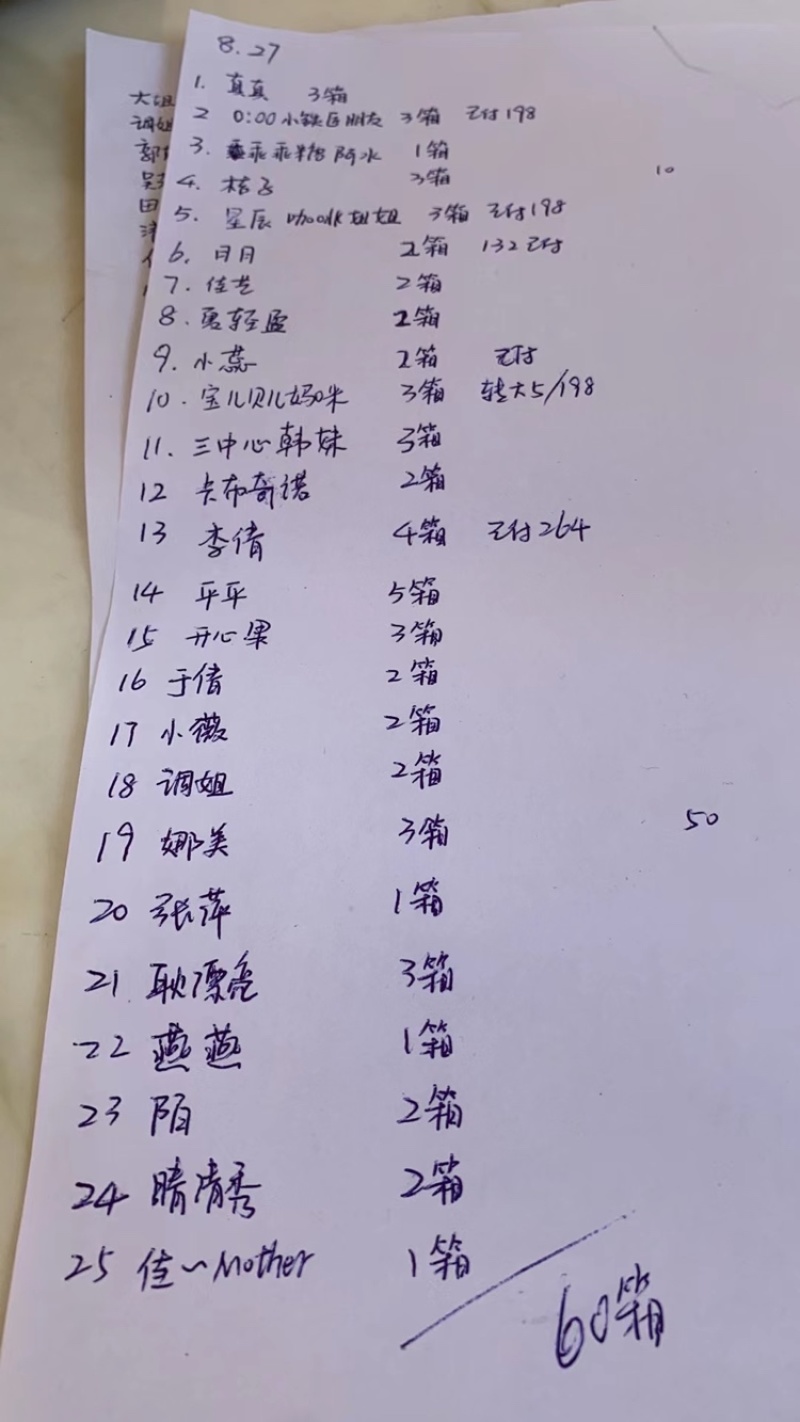 8.27
1. 真真 3箱
2 0:00小铁匠朋友 3箱 已付198
3. 乖乖糖阿水 1箱
4. 桔子 3箱 10
5. 星辰 姐姐 3箱 已付198
6. 日月 2箱 132已付
7. 佳艺 2箱
8. 轻盈 2箱
9. 小蕊 2箱 已付
10. 宝儿贝儿妈咪 3箱 转大5/198
11. 三中心韩妹 3箱
12 卡布奇诺 2箱
13 李倩 4箱 已付264
14 平平 5箱
15 开心果 3箱
16 于倩 2箱
17 小薇 2箱
18 调姐 2箱
19 娜美 3箱 50
20 张萍 1箱
21 耿漂亮 3箱
22 燕燕 1箱
23 陌 2箱
24 晴清秀 2箱
25 佳~Mother 1箱
60箱
大姐
调姐
田